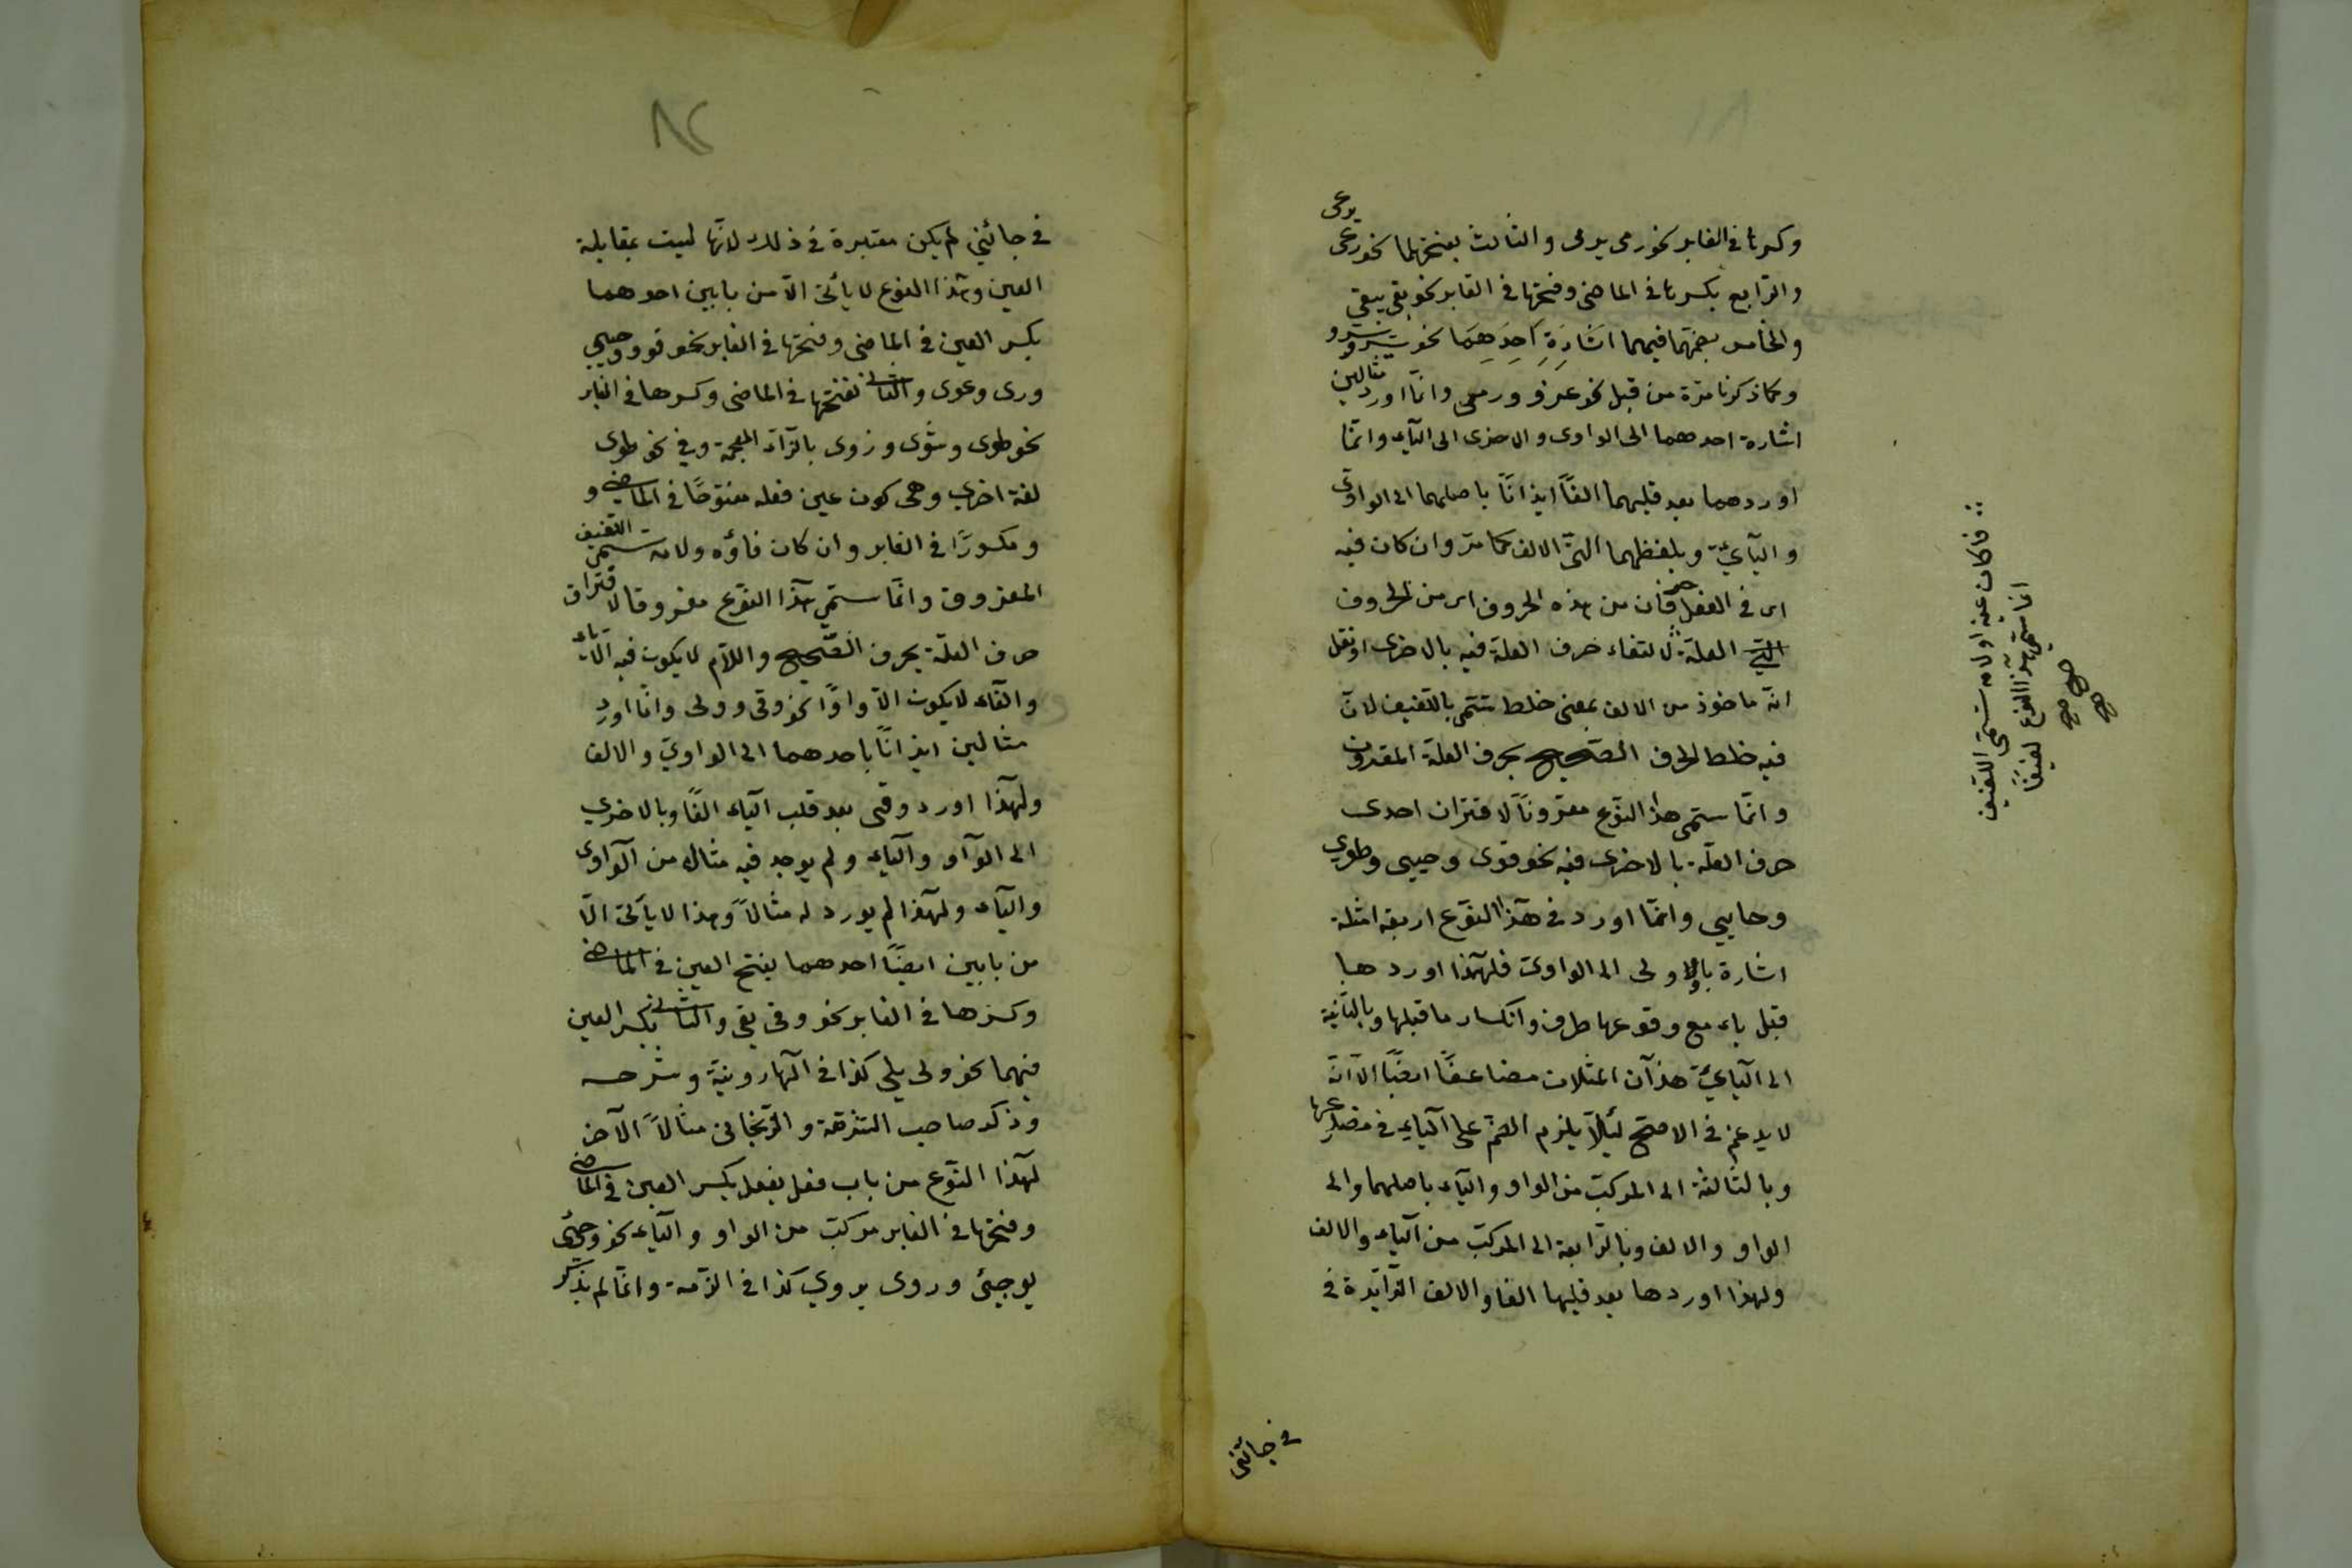 وكسرها في الغابر نحو رمى يرمى والثالث بفتحهما نحو رعى يرعى
والرابع بكسرها في الماضى وفتحها في الغابر نحو بقى يبقى
والخامس بضمهما فيهما اشارة احدهما نحو سرو يسرو
وكما ذكرنا مرة من قبل نحو غزو ورمى وانما اورد مثالين
اشارة احدهما الى الواوى والاخرى الى اليآء وانما
اوردهما بعد قلبهما الفاً ايذاناً باصلهما الى الواوى
واليآئى وبلفظهما الى الالف كما مر وان كان فيه
اى في الفعل حرفان من هذه الحروف اى من الحروف
العلة لالتفاء حرف العلة فيه بالاخرى او نقل
انه ماخوذ من الالف بمعنى خلط سمى باللفيف لان
فيه خلط الحرف الصحيح بحرف العلة المقرون
وانما سمى هذا النوع مقروناً لاقتران احدى
حرف العلة بالاخرى فيه نحو قوى وحيى وطوى
وحايى وانما اورد في هذا النوع اربعة امثلة
اشارة بالاولى الى الواوى فلهذا اوردها
قبل ياء مع وقوعها طرف وانكسار ما قبلها وبالثانية
الى اليآئى هذان المثلان مضاعفاً ايضاً الا انه
لا يدغم في الاصح لئلا يلزم الضم على اليآء في مضارعها
وبالثالثة الى المركب من الواو واليآء باصلهما والى
الواو والالف وبالرابعة الى المركب من اليآء والالف
ولهذا اوردها بعد قلبها الفا والالف الزائدة في
في جائنى
فكان عينه او لامه سمى اللفيف
انما سمى هذا النوع لفيفاً
صح صح
٨٢
في جائنى لم يكن معتبرة في ذلك لانها ليست بمقابلة
العين وهذا النوع لا يأتى الا من بابين احدهما
بكسر العين في الماضى وفتحها في الغابر نحو قوو وحيى
ورى وعوى والثانى بفتحها في الماضى وكسرها في الغابر
نحو طوى وشوى وزوى بالزآء المعجمة وفي نحو طوى
لغة اخرى وهى كون عين فعله مفتوحًا في الماضى و
ومكسورًا في الغابر وان كان فاؤه ولامه سمى اللفيف
المفروق وانما سمى هذا النوع مفروقا لافتراق
حرف العلة بحرف الصحيح واللام لا يكون فيه الا ياء
والفاء لا يكون الا واوًا نحو وقى وولى وانما اورد
مثالين ايذاناً باحدهما الى الواوى والالف
ولهذا اورد وقى بعد قلب اليآء الفًا وبالاخرى
الى الوآو واليآء ولم يوجد فيه مثال من الوآوى
واليآء ولهذا لم يورد له مثالاً وهذا لا يأتى الا
من بابين ايضًا احدهما بفتح العين في الماضى
وكسرها في الغابر نحو وقى يقى والثانى بكسر العين
فيهما نحو ولى يلى كذا في الهارونية وشرحه
وذكر صاحب التنزهة والزنجانى مثالاً الآخر
لهذا النوع من باب فعل يفعل بكسر العين في الماضى
وفتحها في الغابر مركب من الواو واليآء نحو وجئى
يوجئى وروى يروى كذا في الزمة وانما لم يذكر